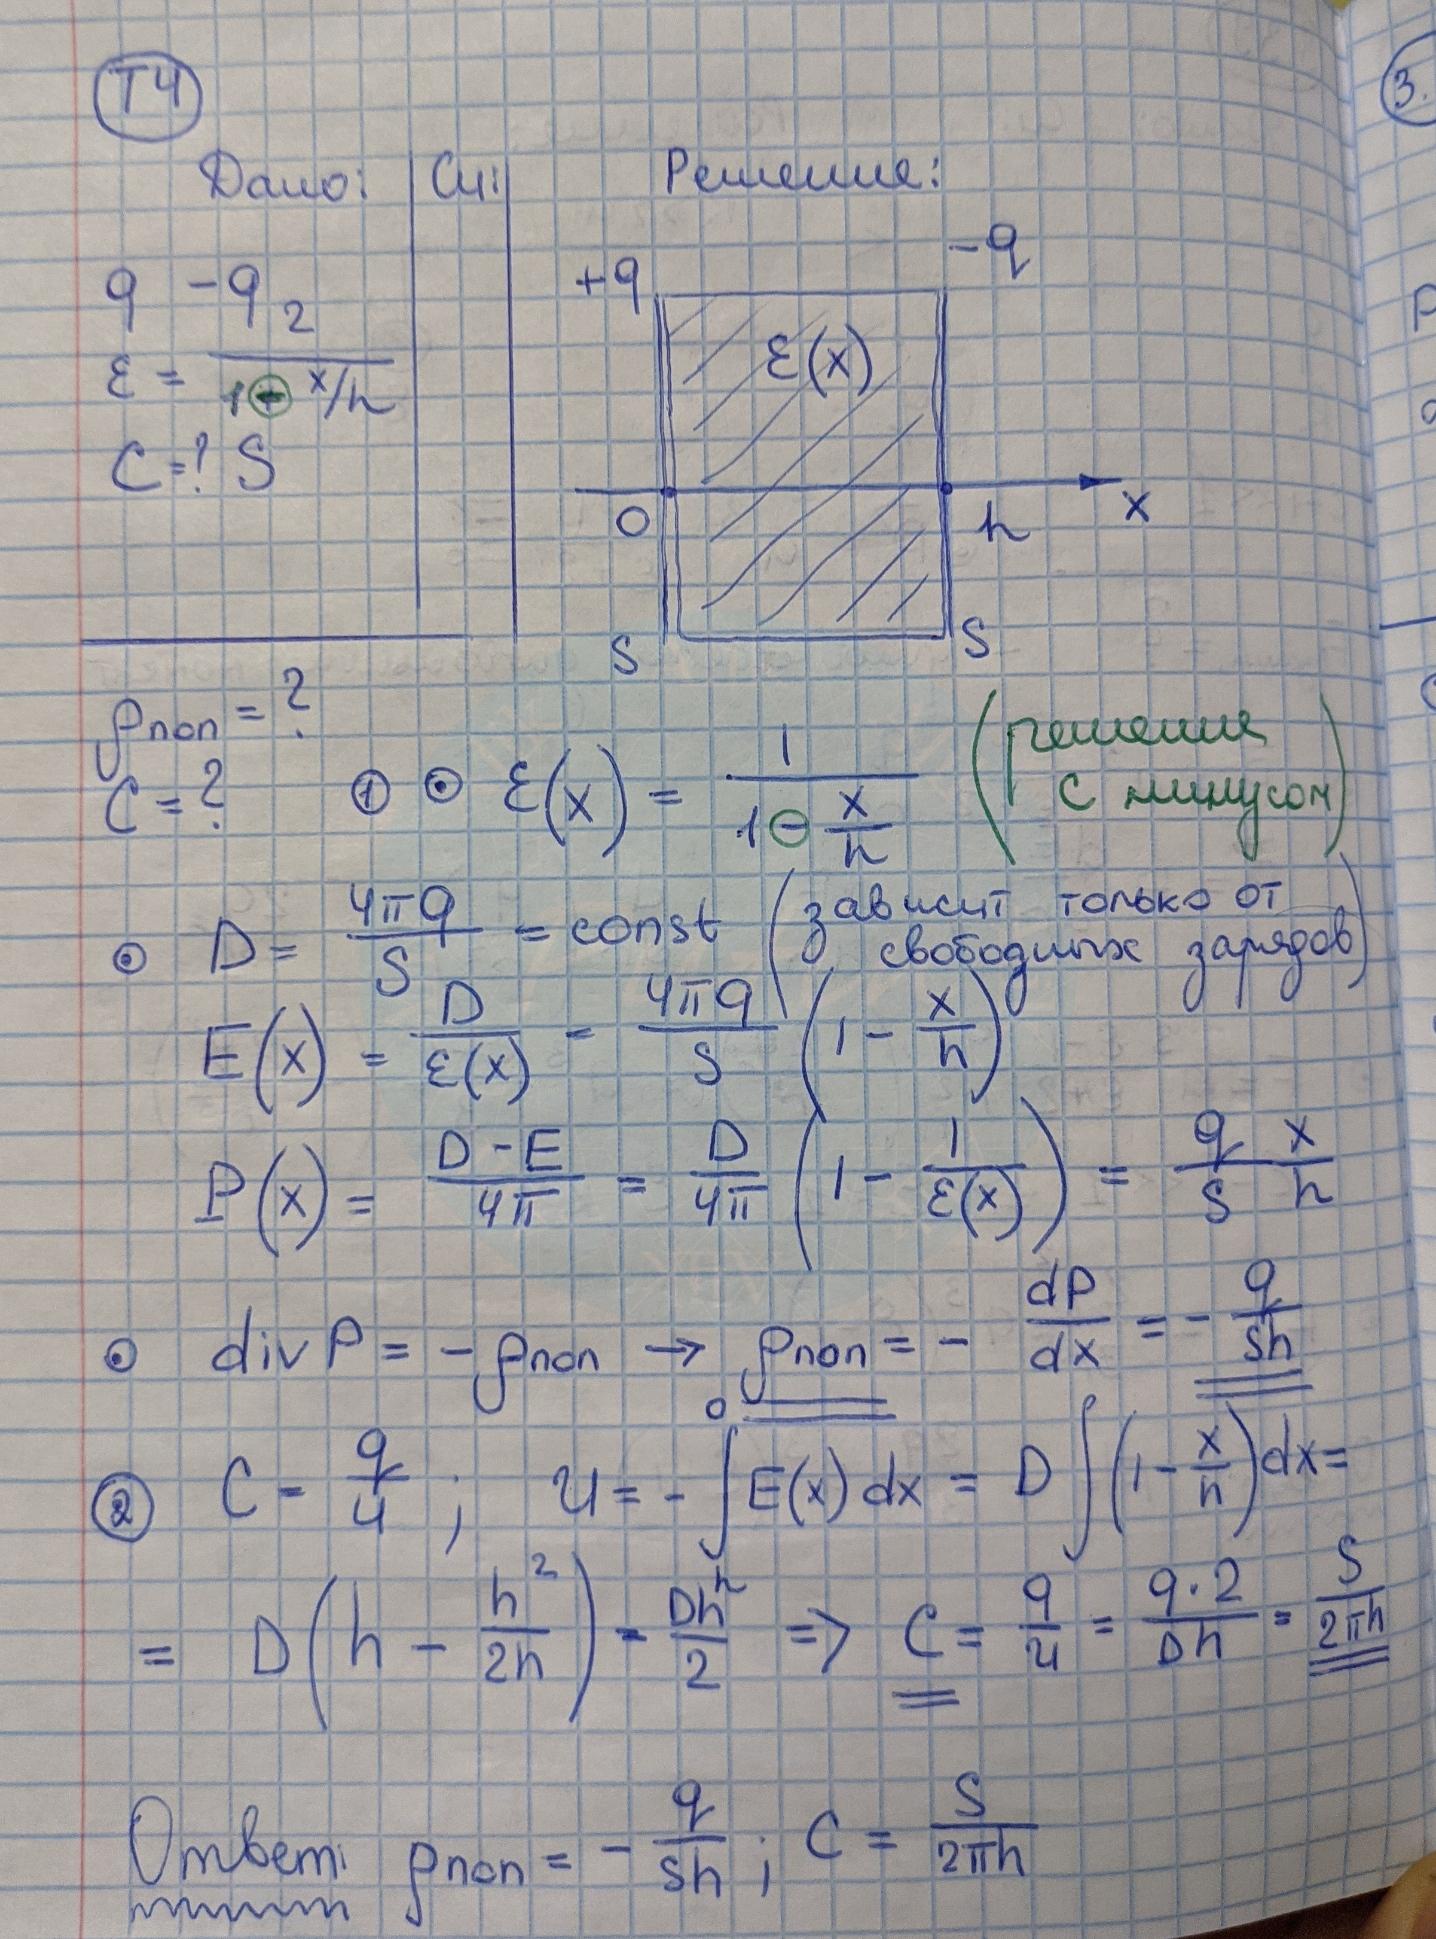 Т4
3.
Дано: Си: Решение:
q -q
ε = 2/(1+x/h)
C=? S
+q -q
ε(x)
0 h x
S S
ρпол = ?
C = ?
① ⊙ ε(x) = 1/(1 - x/h) (решение с минусом)
⊙ D = 4πq/S = const (зависит только от свободных зарядов)
E(x) = D/ε(x) = 4πq/S (1 - x/h)
P(x) = (D - E)/4π = D/4π (1 - 1/ε(x)) = q/S x/h
⊙ div P = -ρпол → ρпол = - dP/dx = - q/Sh
② C = q/U ; U = - ∫⁰ E(x) dx = D ∫ (1 - x/h) dx =
= D (h - h²/2h) = Dh/2 => C = q/U = q·2/Dh = S/2πh
Ответ: ρпол = - q/Sh ; C = S/2πh